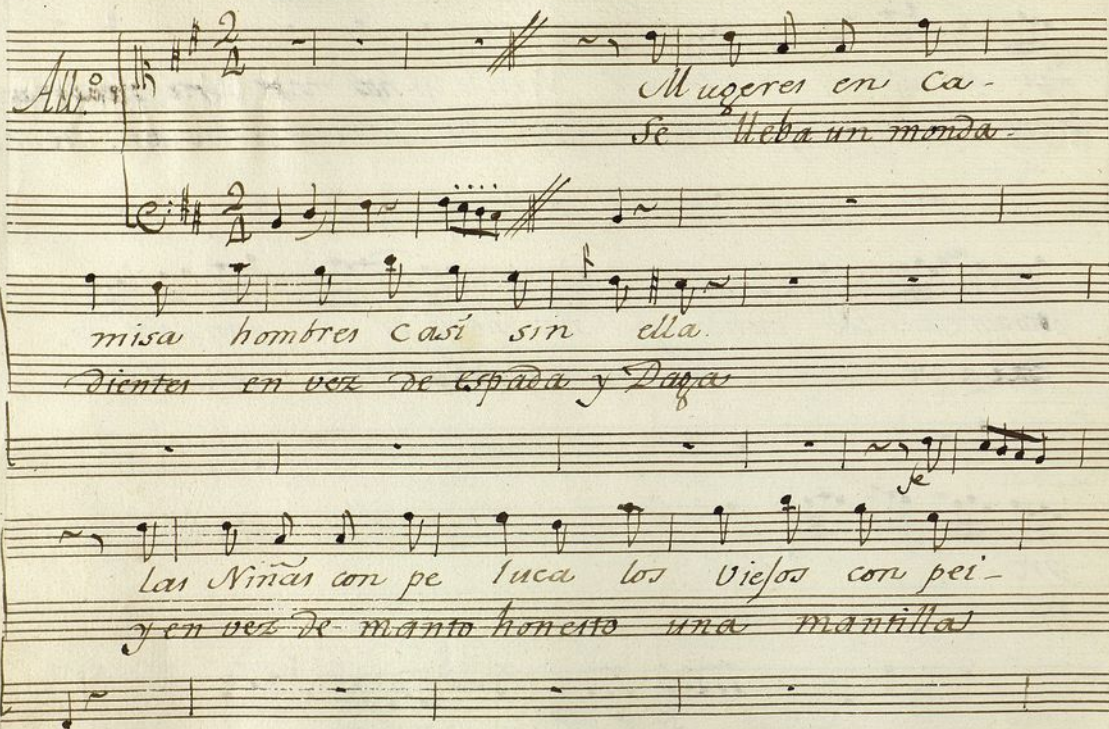 All.º
Mugeres en ca-
se lleba un monda-
misa hombres casi sin ella.
dientes en vez de espada y Daga
las Niñas con pe luca los Viejos con pei-
y en vez de manto honesto una mantilla